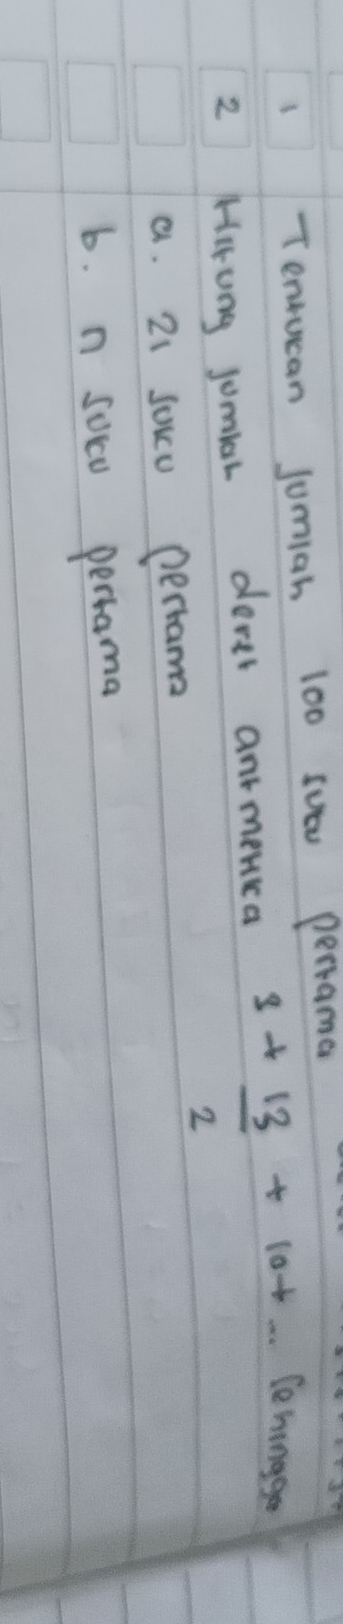 1 Tentukan Jumlah 100 suku pertama
2 Hitung jumlah deret aritmetika 8 + 13/2 + 10 + ... sehingga
a. 21 suku pertama
b. n suku pertama